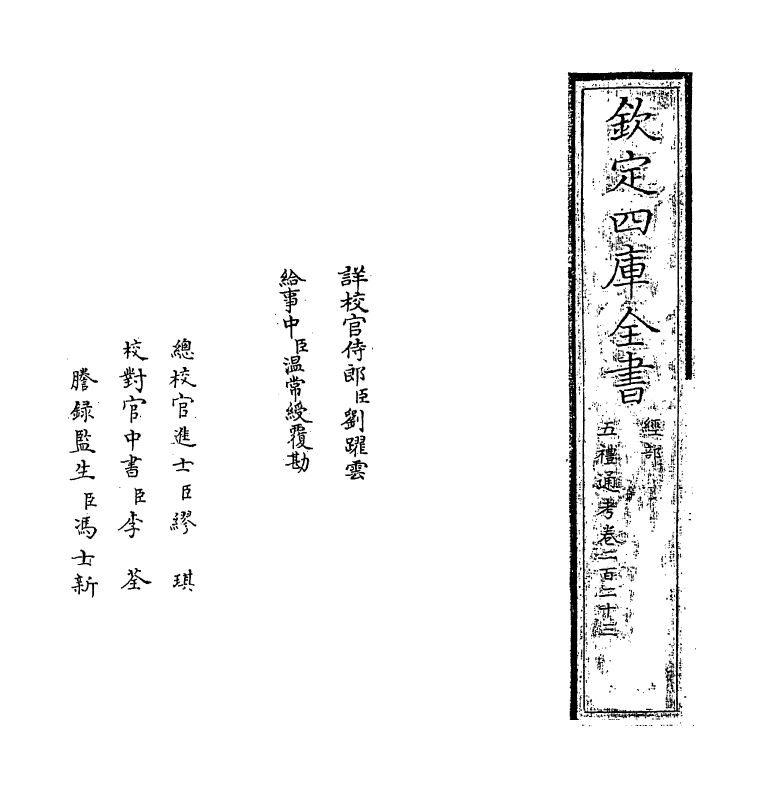 欽定四庫全書
經部
五禮通考卷二百二十三
詳校官侍郎臣劉躍雲
給事中臣温常綬覆勘
總校官進士臣繆琪
校對官中書臣李荃
謄録監生臣馮士新